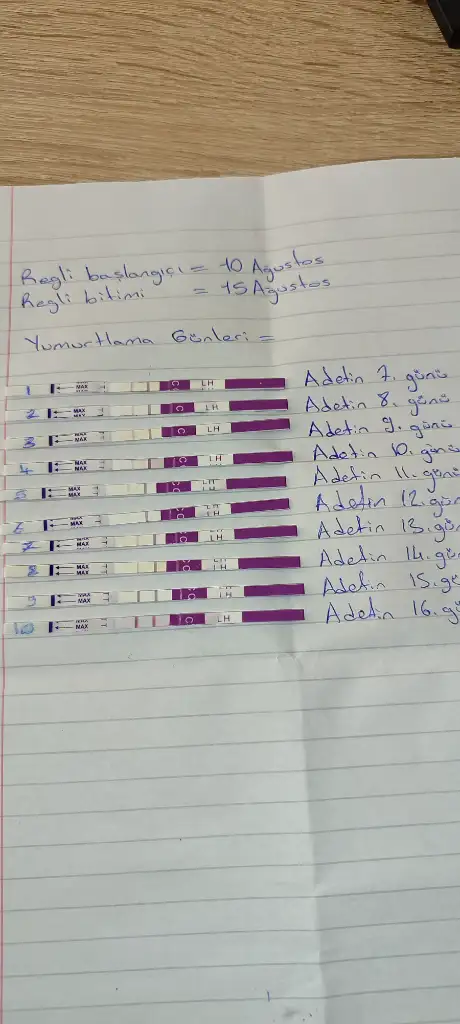 Regli başlangıcı = 10 Ağustos
Regli bitimi = 15 Ağustos
Yumurtlama Günleri =
1 MAX LH Adetin 7. günü
2 MAX LH Adetin 8. günü
3 MAX LH Adetin 9. günü
4 MAX LH Adetin 10. günü
5 MAX LH Adetin 11. günü
6 MAX LH Adetin 12. gün
7 MAX LH Adetin 13. gü
8 MAX LH Adetin 14. gü
9 MAX LH Adetin 15. gü
10 MAX LH Adetin 16. gü